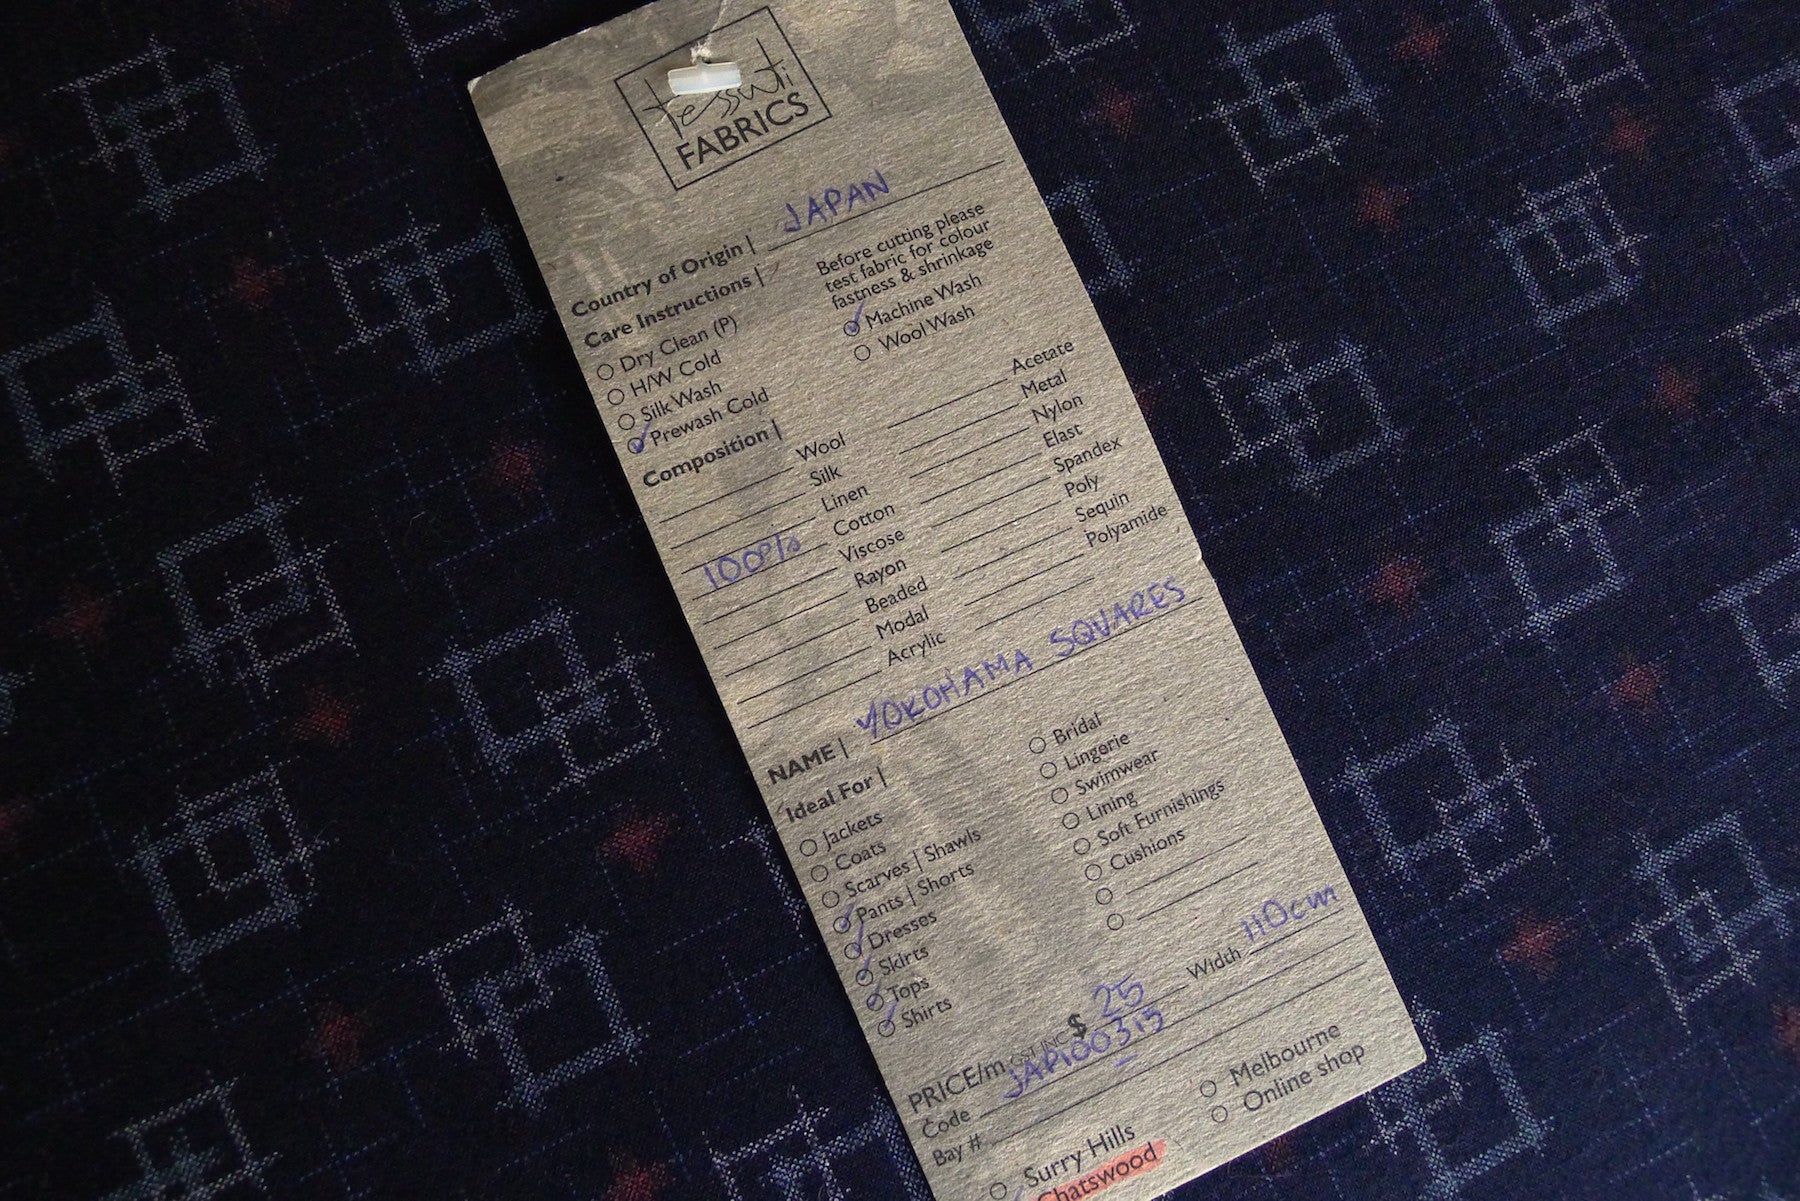 tessuti
FABRICS
Country of Origin | JAPAN
Care Instructions |
Before cutting please
test fabric for colour
fastness & shrinkage
Dry Clean (P)
H/W Cold
Silk Wash
Prewash Cold
Machine Wash
Wool Wash
Composition |
Wool
Silk
Linen
100% Cotton
Viscose
Rayon
Beaded
Modal
Acrylic
Acetate
Metal
Nylon
Elast
Spandex
Poly
Sequin
Polyamide
NAME | YOKOHAMA SQUARES
Ideal For |
Jackets
Coats
Scarves | Shawls
Pants | Shorts
Dresses
Skirts
Tops
Shirts
Bridal
Lingerie
Swimwear
Lining
Soft Furnishings
Cushions
PRICE/m GST INC $ 25 Width 110cm
Code JAP100315
Bay #
Surry Hills
Chatswood
Melbourne
Online shop